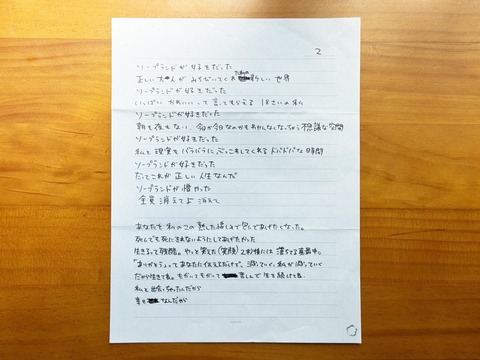 2
ソープランドが好きだった
正しい大人がみちびいてくれた新しい世界
ソープランドが好きだった
いっぱいかわいいって言ってもらえる 18さいの私
ソープランドが好きだった
朝も夜もない、今日が今日なのかもわかんなくなっちゃう不思議な空間
ソープランドが好きだった
私と現実をバラバラにぶっこわしてくれるドバドバな時間
ソープランドが好きだった
だってこれが正しい人生なんだ
ソープランドが憎かった
全員消えてよ 消えて
あなたを私のこの熟した
で包んであげたくなった。
死んでも死にきれないようにしてあげたかった
生きるって残酷。やっと笑えた(笑顔)2秒後には落ちてる真最中。
「ありがとうっってあなたに伝えるたびに、減っていく。私が減っていく
だから生きてね。もがいてもがいて 苦しんで生き続けてね
私と出会っちゃったんだから
幸せ なんだから